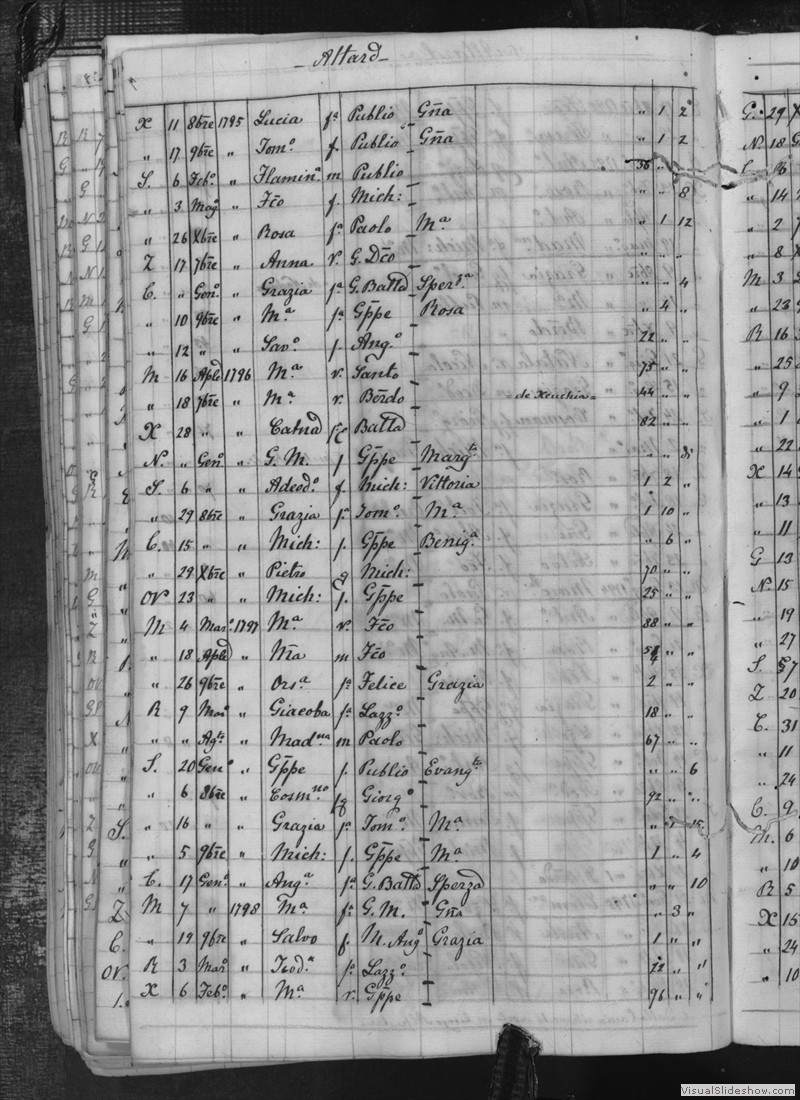 - Attard -
X 11 8bre 1795 Lucia fa Publio Gña " 1 2
" 17 9bre " Tomo f. Publio Gña " 1 2
S. 6 Febo " Flamina m Publio 56 " "
" 3 Mago " Fco f. Mich: " " 8
" 26 Xbre " Rosa fa Paolo Ma " 1 12
Z 17 7bre " Anna v. G. Dco " " "
C. " Geno " Grazia fa G. Batta Sperza " " 4
" 10 9bre " Ma fa Gppe Rosa " 4 "
" 12 " " Savo f. Ango 22 " "
M 16 Aple 1796 Ma v. Santo 75 " "
" 18 7bre " Ma v. Berdo de Xeuchia 44 " "
X 28 " " Catna Batta 82 " "
N. " Geno " G. M. f Gppe Margta " "
S. 6 " " Adeodo f. Mich: Vittoria 1 2 "
" 29 8bre " Grazia fa Tomo Ma 1 10 "
C. 15 " " Mich: f. Gppe Beniga " 6 "
" 29 Xbre " Pietro g Mich: 70 " "
OV. 23 " " Mich: f. Gppe 25 " "
M 4 Maro 1797 Ma v. Fco 88 " "
" 18 Aple " Mra m Fco " "
" 26 9bre " Orsa fa Felice Grazia 2 " "
R 9 Maro " Giacoba fa Lazzo 18 " "
" " Agto " Madna m Paolo 67 " "
S. 20 Geno " Gppe f. Publio Evangta " " 6
" 6 8bre " Cosmno Giorgo 92 " "
" 16 " " Grazia fa Tomo Ma " 15
" 5 9bre " Mich: f. Gppe Ma 1 " 4
C. 17 Geno " Anga fa G. Batta Sperza " " 10
M 7 " 1798 Ma fa G. M. Gña " 3 "
" 19 9bre " Salvo f. M. Ango Grazia 1 " "
R 3 Maro " Teoda fa Lazzo 22 " "
X 6 Febo " Ma v. Gppe 96 " "
G. 29 X
N. 18 G
C. 16
" 14
" 2
" 8 X
M 3
" 23
R 16
" 25
" 9
" 1
" 22
X 14
" 13
" 11
G 13
N. 15
" 19
" 27
S. 7
Z 20
C. 31
" 11
" 24
C. 9
M. 6
" 10
R 5
X 15
" 24
" 10
VisualSlideshow.com